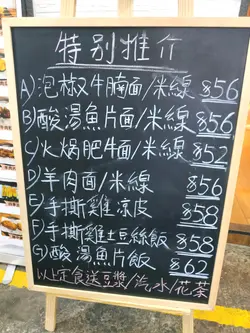 特別推介
A)泡椒牛腩面/米線 $56
B)酸湯魚片面/米線 $56
C)火煱肥牛面/米線 $52
D)羊肉面/米線 $56
E)手撕雞涼皮 $58
F)手撕雞土豆絲飯 $58
G)酸湯魚片飯 $62
以上定食送豆漿/汽水/花茶